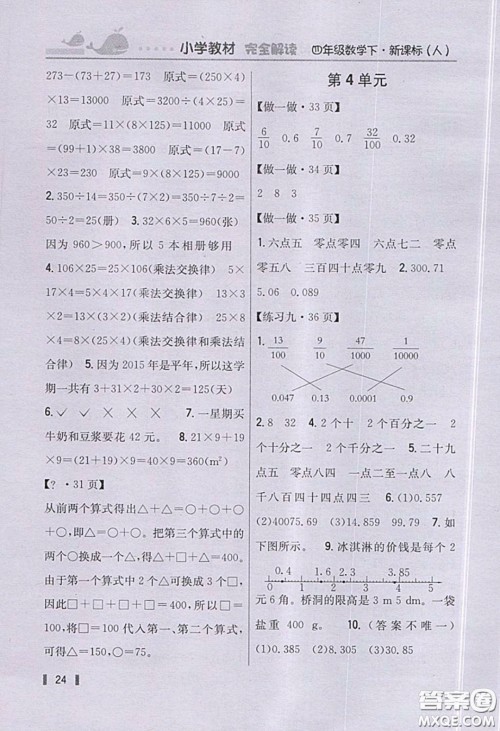 小学教材 完全解读 四年级数学下·新课标(人)
273-(73+27)=173 原式=(250×4)
×13=13000 原式=3200÷(4×25)=
32 原式=(4×25)×(8×125)=100000
原式=(99+1)×38=3800 原式=(17-7)
×23=230 原式=9×(25+1000)=9225
2. 350÷14=350÷(7×2)=350÷7÷2=
50÷2=25(册) 3. 32×6×5=960(张)
因为 960>900,所以 5 本相册够用
4. 106×25=25×106(乘法交换律) 5×
17×2=5×2×17(乘法交换律) 13×3×
5=13×(3×5)(乘法结合律) 25×9×
8=25×8×9(乘法交换律和乘法结合
律) 5. 因为 2015 年是平年,所以这学
期一共有 3+31×2+30×2=125(天)
6. ✓ ✓ × × × 7. 一星期买
牛奶和豆浆要花 42 元。 8. 21×9+19
×9=(21+19)×9=40×9=360(m²)
【?·31 页】
从前两个算式得出△+△=○+○+○
+○,即△=○+○。把第三个算式中的
两个○换成一个△,得△+△+□=400。
由于第一个算式中 2 个△可换成 3 个□,
因此□+□+□+□=400,所以□=
100,将□=100 代入第一、第二个算式,
可得△=150,○=75。
24
第 4 单元
【做一做·33 页】
6/10 0.6 7/10 0.7 32/100 0.32
【做一做·34 页】
2 8 3
【做一做·35 页】
1. 六点五 零点零四 六点七二 零点
零五八 三百四十点零七 2. 300.71
5.06 0.089
【练习九·36 页】
1. 13/100 9/10 47/1000 1/10000
0.047 0.13 0.0001 0.9
2. 8 32 4. 2 个十 2 个百分之一 2
个十分之一 2 个千分之一 5. 二十九
点五 零点八四 一点二二一五六 八
千八百四十四点四三 6. (1)0.557
(2)40075.69 (3)14.59 99.98 8. 如
下图所示。 9. 冰淇淋的价钱是每个 2
0 1 2 3 4 5dm
元 6 角。桥洞的限高是 3 m 5 dm。一袋
盐重 400 g。 10. (答案不唯一)
(1)0.385 (2)8.305 (3)30.85
答案圈
MXQE.COM